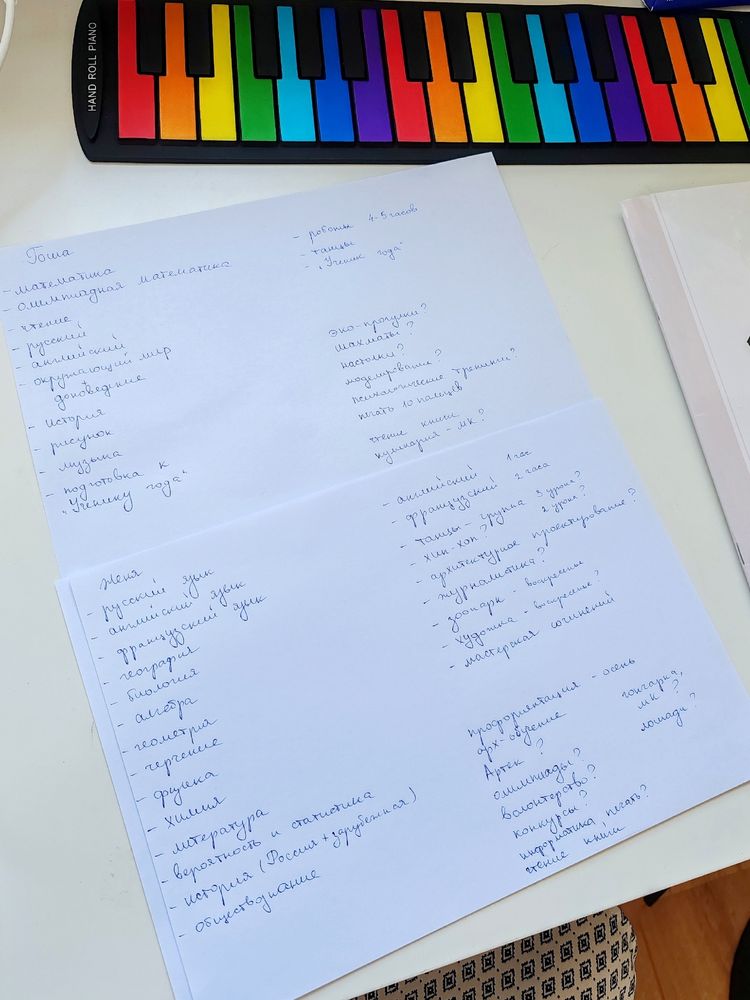 HAND ROLL PIANO
Гоша
- математика
- олимпиадная математика
- чтение
- русский
- английский
- окружающий мир
+
доноведение
- история
- рисунок
- музыка
- подготовка к
"Ученику года"
- роботы 4-5 часов
- танцы
- "Ученик года"
эко-прогулки?
шахматы?
настолки?
моделирование?
психологические тренинги?
печать 10 пальцев
чтение книги
кулинария - мк?
Женя
- русский язык
- английский язык
- французский язык
- география
- биология
- алгебра
- геометрия
- черчение
- физика
- химия
- литература
- вероятность и статистика
- история (Россия + зарубежная)
- обществознание
- английский 1 час
- французский 2 часа
- танцы - группа 3 урока?
- хип-хоп? 2 урока?
- архитектурное проектирование?
- журналистика?
- зоопарк - воскресенье
- художка - воскресенье?
- мастерская сочинений
профориентация - осень
арх-обучение гончарка,
Артек? мк?
олимпиады? лошади?
волонтерство?
конкурсы?
информатика, печать?
чтение книги